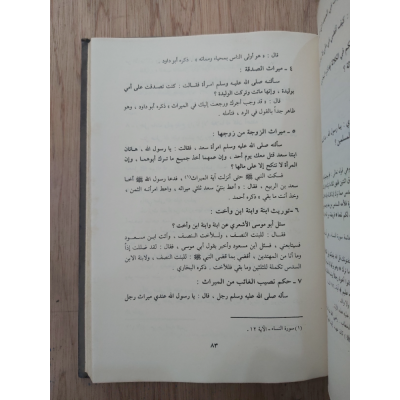 قال : « هو أولى الناس بمحياه ومماته » . ذكره أبو داود .
٤ ـ ميراث الصدقة :
سألته صلى الله عليه وسلم امرأة فقالت : كنت تصدقت على أمي
بوليدة ، وإنها ماتت وتركت الوليدة ؟
قال : « قد وجب أجرك ورجعت إليك في الميراث » ذكره أبو داود ، وهو
ظاهر جداً بالقول في الرد ، فتأمله .
٥ ـ ميراث الزوجة من زوجها :
سألته صلى الله عليه وسلم امرأة سعد ، فقالت : يا رسول الله ، هاتان
ابنتا سعد قتل معك يوم أحد ، وإن عمهما أخذ جميع ما ترك أبوهما ، وإن
المرأة لا تنكح إلا على مالها ؟
فسكت النبي ﷺ حتى أنزلت آية الميراث(١) ، فدعا رسول الله ﷺ أخا
سعد بن الربيع ، فقال : « أعط بنتي سعد ثلثي ميراثه ، وأعط امرأته الثمن ،
وخذ أنت ما بقي » ذكره أحمد .
٦ ـ توريث ابنة وابنة ابن وأخت :
سئل أبو موسى الأشعري عن ابنة وابنة ابن وأخت ؟
فقال : للبنت النصف ، وللأخت النصف ، وأت ابن مسعود
فسيتابعني ، فسئل ابن مسعود وأخبر بقول أبي موسى ، فقال : لقد ضللت إذاً
وما أنا من المهتدين ، أقضي بما قضى النبي ﷺ : للبنت النصف ، ولابنة الابن
السدس تكملة للثلثين وما بقي فللأخت . ذكره البخاري .
٧ ـ حكم نصيب الغائب من الميراث :
سأله صلى الله عليه وسلم رجل ، قال : يا رسول الله عندي ميراث رجل
(١) سورة النساء ـ الآية ١٢ .
٨٣